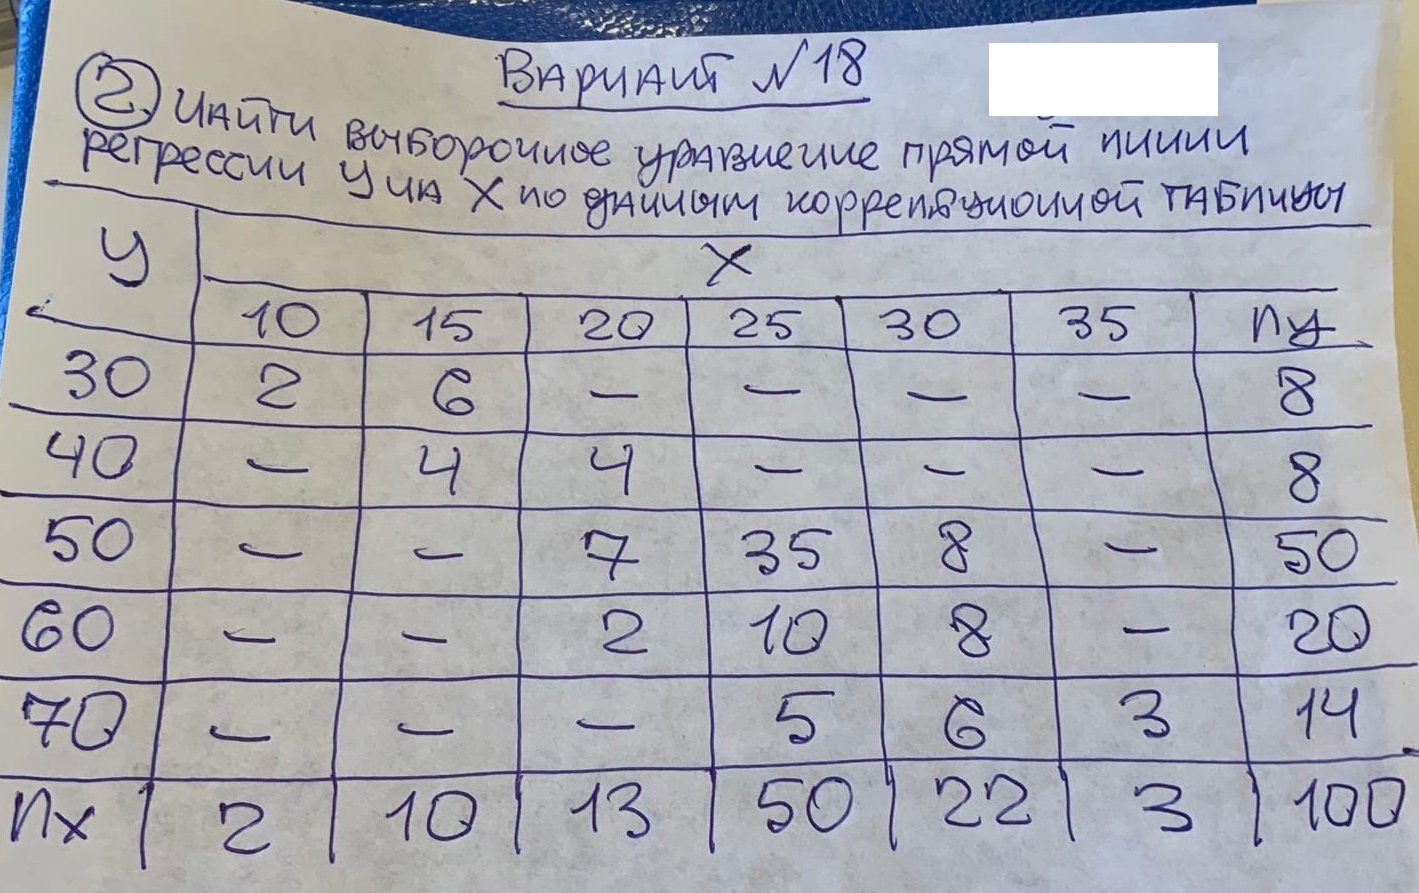 Вариант №18
② Найти выборочное уравнение прямой линии
регрессии У на Х по данным корреляционной таблицы
У Х
10 15 20 25 30 35 ny
30 2 6 – – – – 8
40 – 4 4 – – – 8
50 – – 7 35 8 – 50
60 – – 2 10 8 – 20
70 – – – 5 6 3 14
nx 2 10 13 50 22 3 100